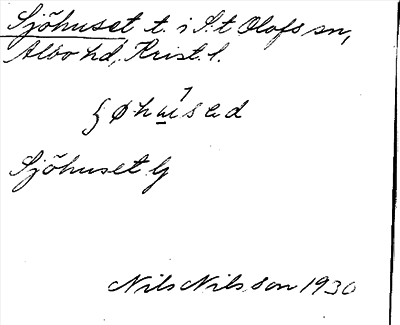 Sjöhuset t. i S:t Olofs sn,
Albo hd, Krist. l.
Sjöhuset Lj
Nils Nilsson 1930